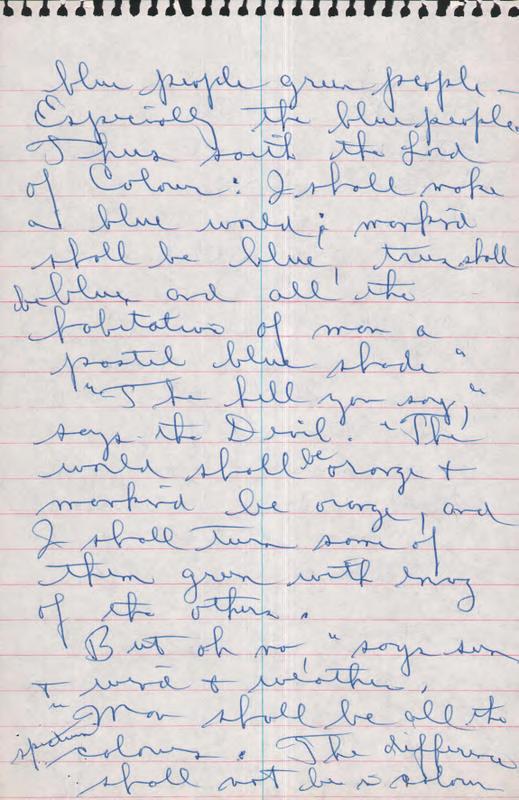 blue people green people –
Especially the blue people.
Thus saith the Lord
of Colour: I shall make
a blue world; mankind
shall be blue, trees shall
be blue, and all the
habitations of man a
pastel blue shade"
"The hell you say,"
says the Devil. "The
world shall be orange +
mankind be orange, and
I shall turn some of
them green with envy
of the others.
But oh no," says sun
+ wind + weather,
"Man shall be all the
spectrum colours. The difference
shall not be in colour